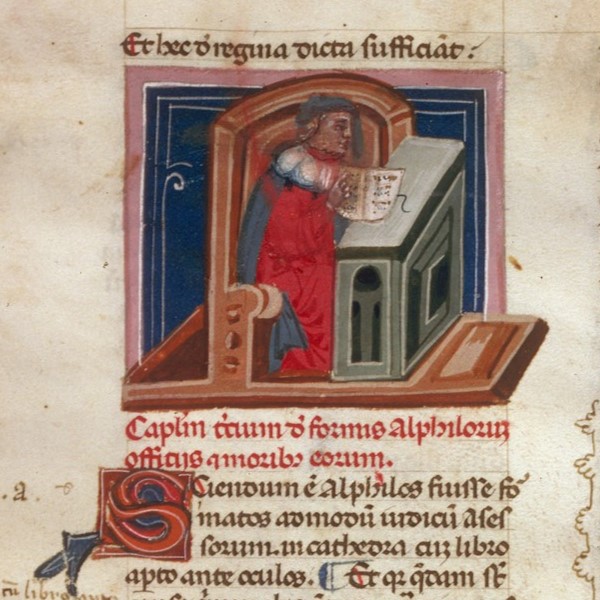 Et hec d̕ regina dicta sufficiāt :
Caplm̄ t̄cium d̕ formis Alphiloruȝ
officijs ⁊ moribȝ eorum.
.a.
Sciendum ē Alphilos fuisse fo᷑
matos ad modū iudicū Ases
sorum. in cathedra cuȝ libro
apto ante oculos. ¶ Et qr q̄dam st̄
libro